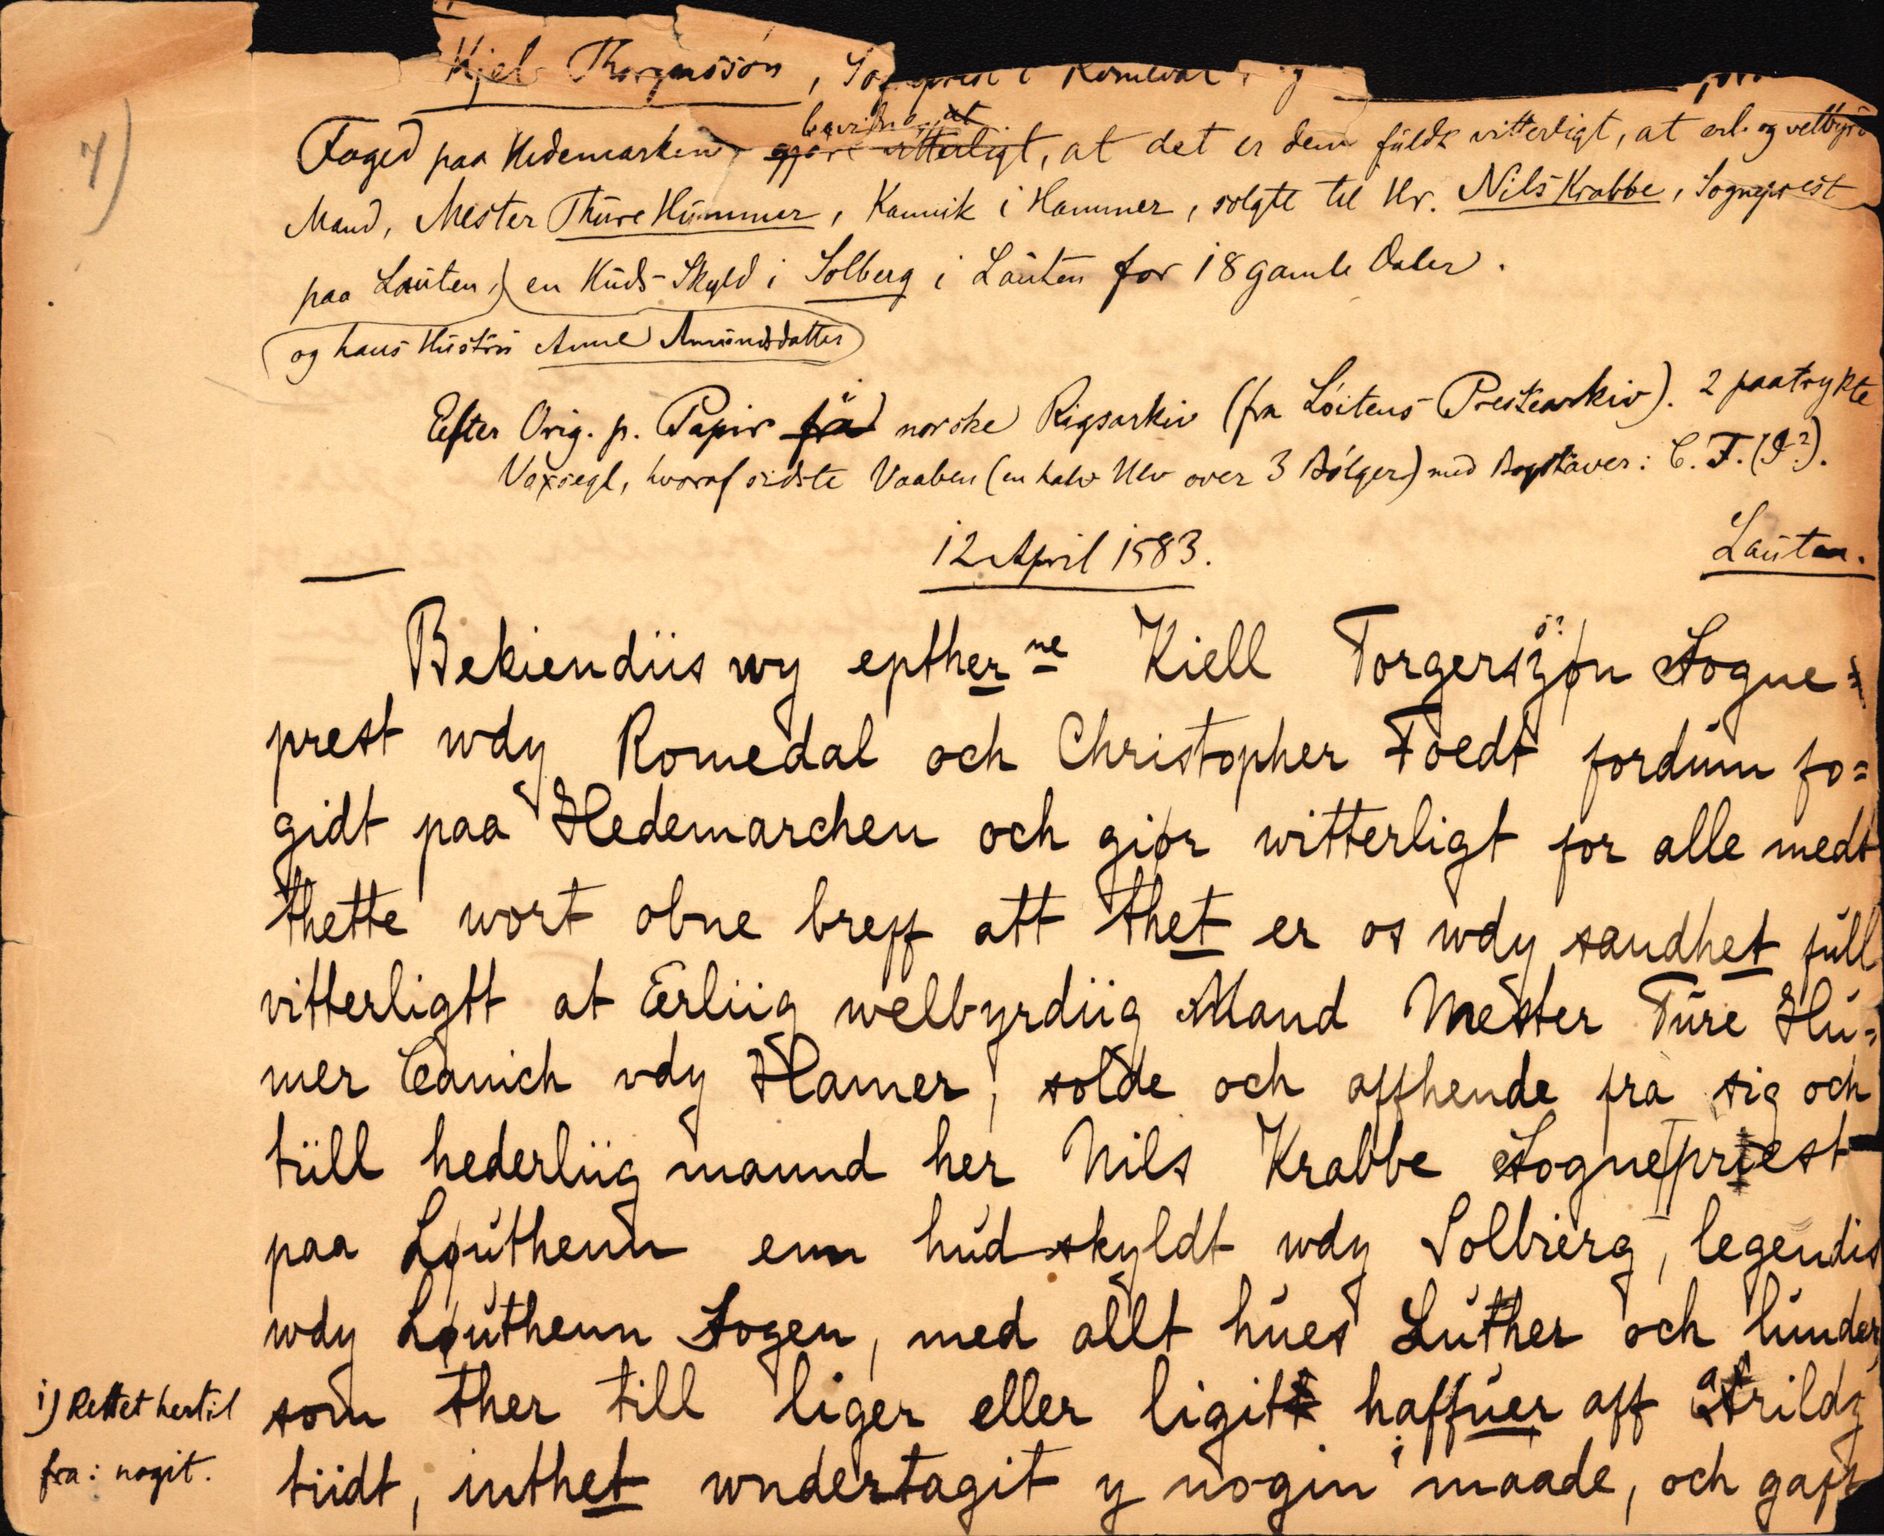 7)
Kjel Thorgerssön, Sogneprest i Romedal, og
Foged paa Hedemarken, bevidne at gjøre vitterligt, at det er dem fuldt vitterligt, at erl. og velbyrd
Mand, Mester Thure Hummer, Kannik i Hammer, solgte til Hr. Nils Krabbe, Sogneprest
paa Lauten, en Huds-Skyld i Solberg i Lauten for 18 gamle Daler.
og hans Hustru Anne Amundsdatter
Efter Orig. p. Papir fra norske Rigsarkiv (fra Löitens Prestearkiv). 2 paatrykte
Voxsegl, hvoraf sidste Vaaben (en halv Ulv over 3 Bölger) med Bogstaver: C. F. (I?).
12 April 1583.
Lauten.
Bekiendiis wy epther ne Kiell Torgerszøn Sogne=
prest wdy Romedal och Christopher Foedt fordum fo=
gidt paa Hedemarchen och giør witterligt for alle medt
thette wort obne breff att thet er os wdy sandhet full
vitterligtt at Erliig welbyrdiig Mand Mester Ture Hu=
mer Canich vdy Hamer, solde och affhende fra sig och
tiill hederliig mannd her Nils Krabbe Sognepriest
paa Løuthenn enn hud skyldt wdy Solbierg, legendis
wdy Løuthenn Sogen, med allt hues Luther och lunder,
som ther till liger eller ligitt haffuer aff Arildz
tiidt, inthet wndertagit y nogin maade, och gaff
1) Rettet hertil
fra: nogit.